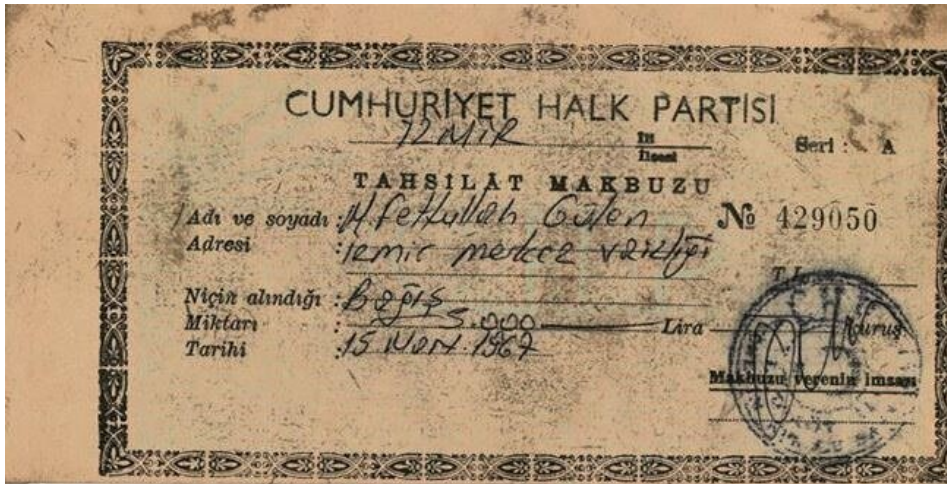 CUMHURİYET HALK PARTİSİ
İZMİR İli
İlçesi
Seri : A
TAHSİLÂT MAKBUZU
Adı ve soyadı : M. Fethullah Gülen № 429050
Adresi : izmir merkez vaizliği
T. L.
Niçin alındığı : Bağış
Miktarı : 5.000 Lira Kuruş
Tarihi : 15 1967
Makbuzu verenin imzası